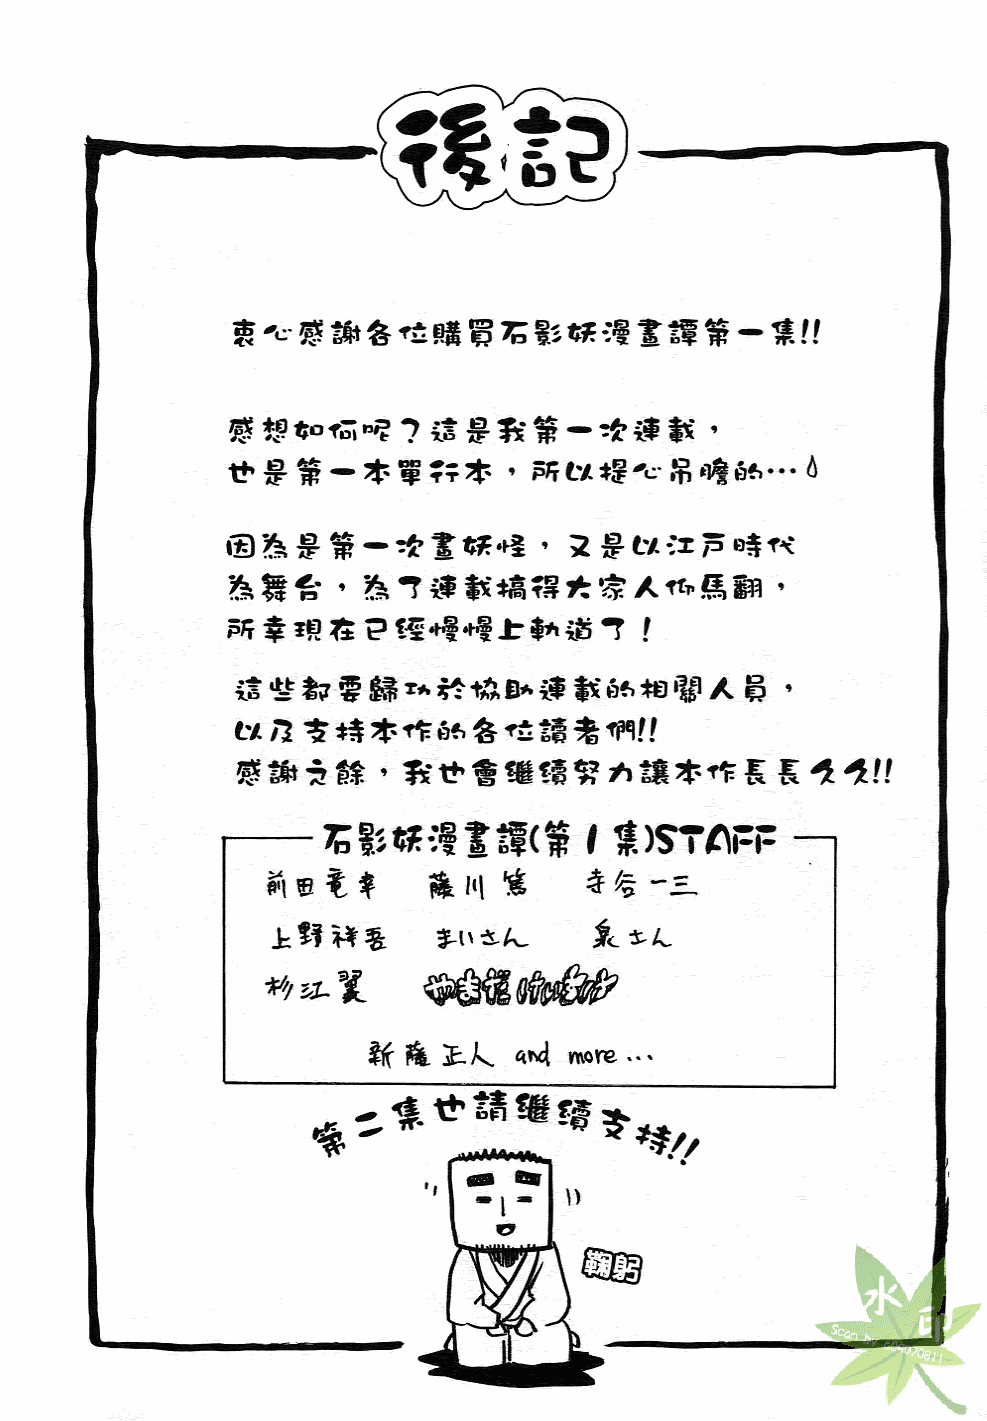 後記
衷心感謝各位購買石影妖漫畫譚第一集!!
感想如何呢？這是我第一次連載，
也是第一本單行本，所以提心吊膽的…
因為是第一次畫妖怪，又是以江戶時代
為舞台，為了連載搞得大家人仰馬翻，
所幸現在已經慢慢上軌道了！
這些都要歸功於協助連載的相關人員，
以及支持本作的各位讀者們!!
感謝之餘，我也會繼續努力讓本作長長久久!!
石影妖漫畫譚(第1集)STAFF
前田竜幸 藤川篤 寺谷一三
上野祥吾 まいさん 泉さん
杉江翼
新薩正人 and more…
第二集也請繼續支持!!
鞠躬
水印
Scan by